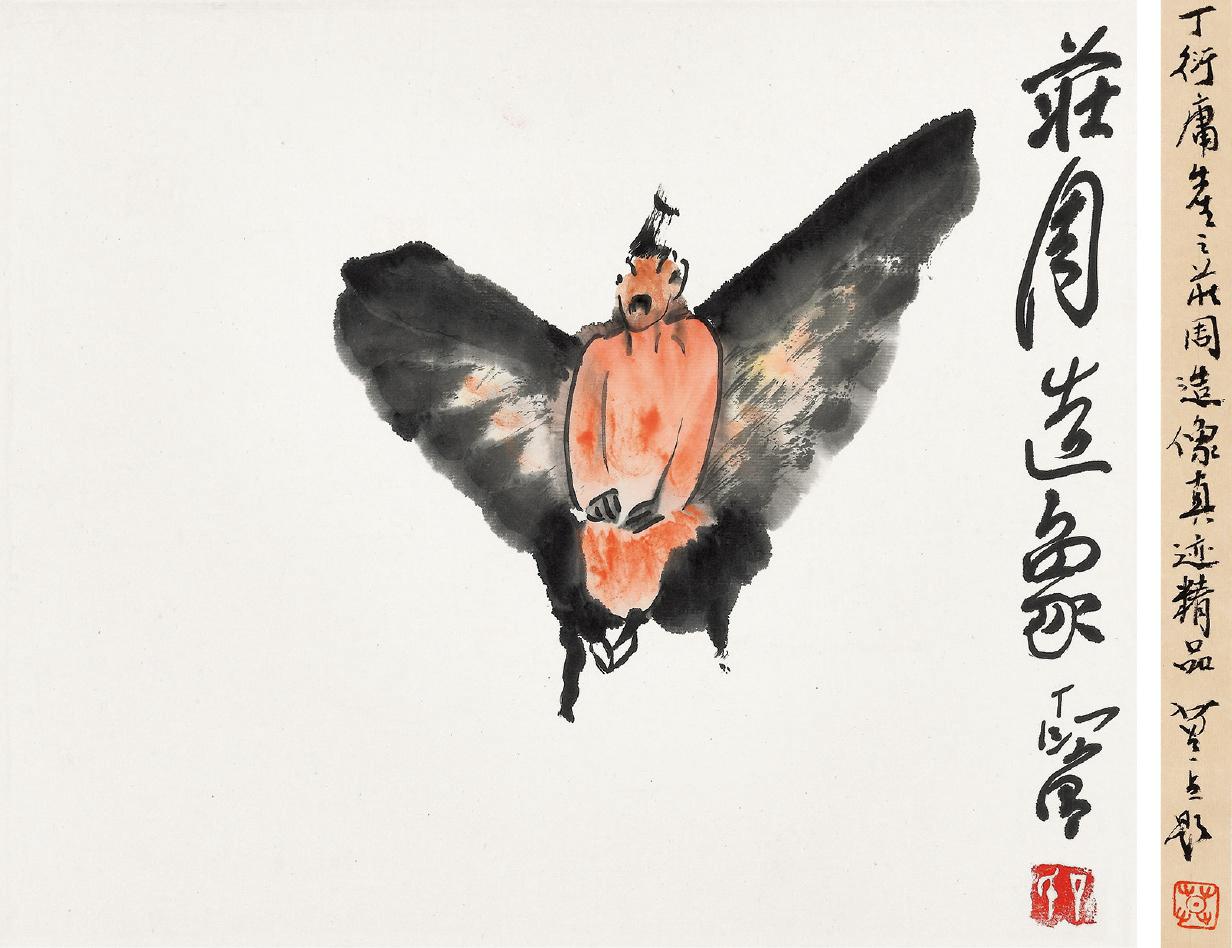 丁衍庸先生之莊周造像真迹精品 莫一点題
莊周造象 丁衍庸